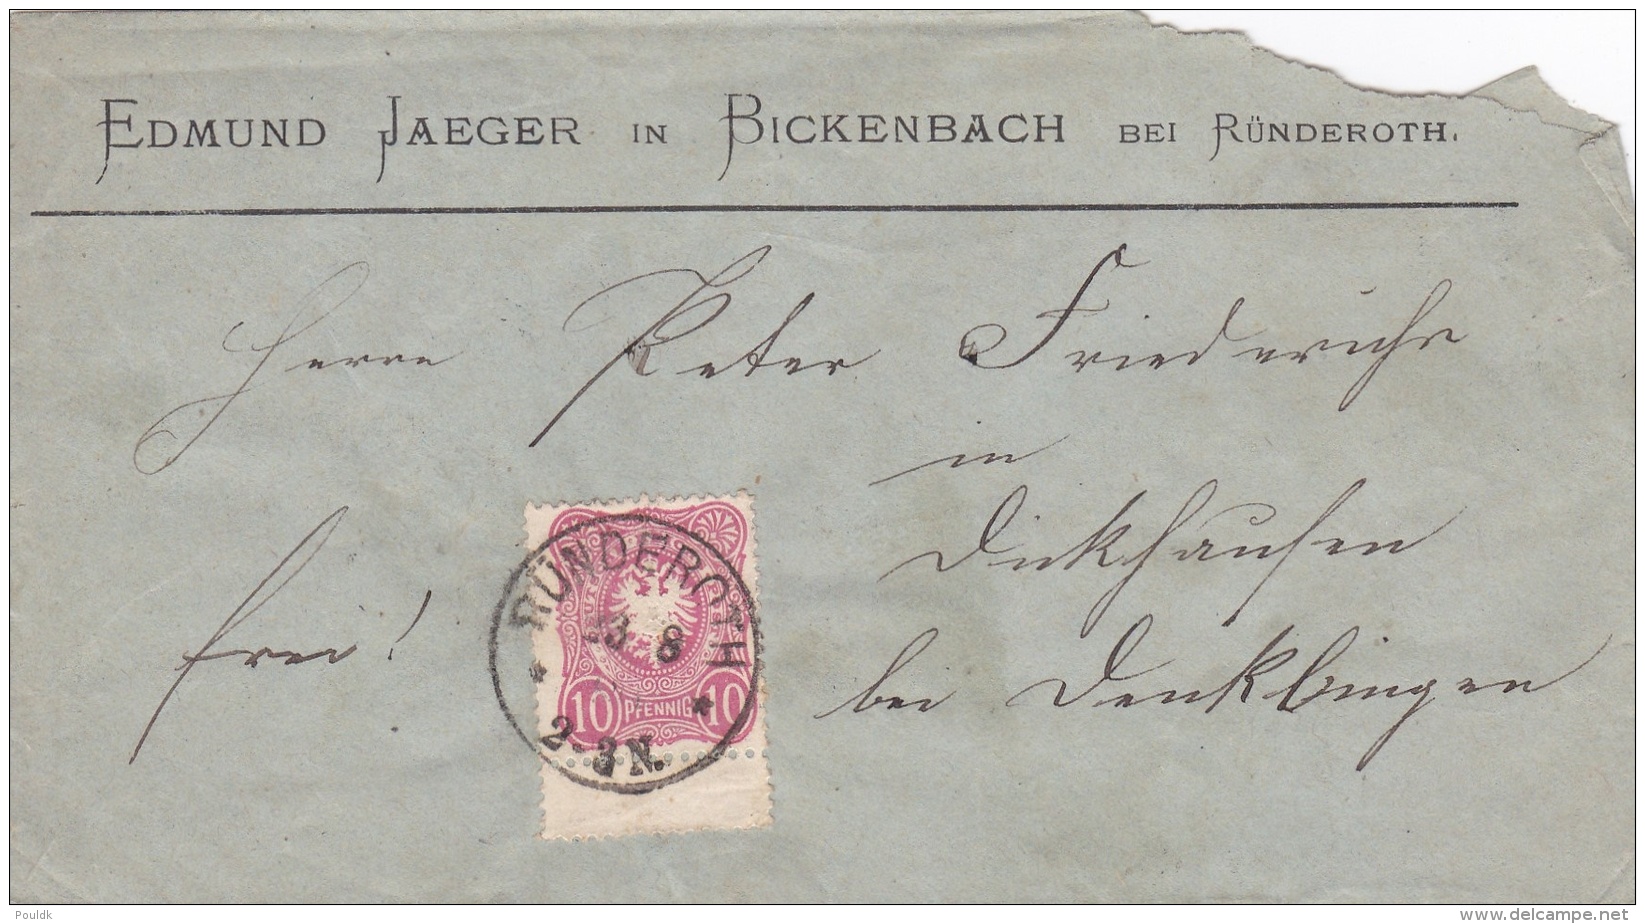 EDMUND JAEGER IN BICKENBACH BEI RÜNDEROTH.
Herrn Peter Friederichs
in
Dickhausen
frei!
bei Denklingen
RÜNDEROTH
3 8
2-3 N.
10 PFENNIG 10
Pouldk
www.delcampe.net